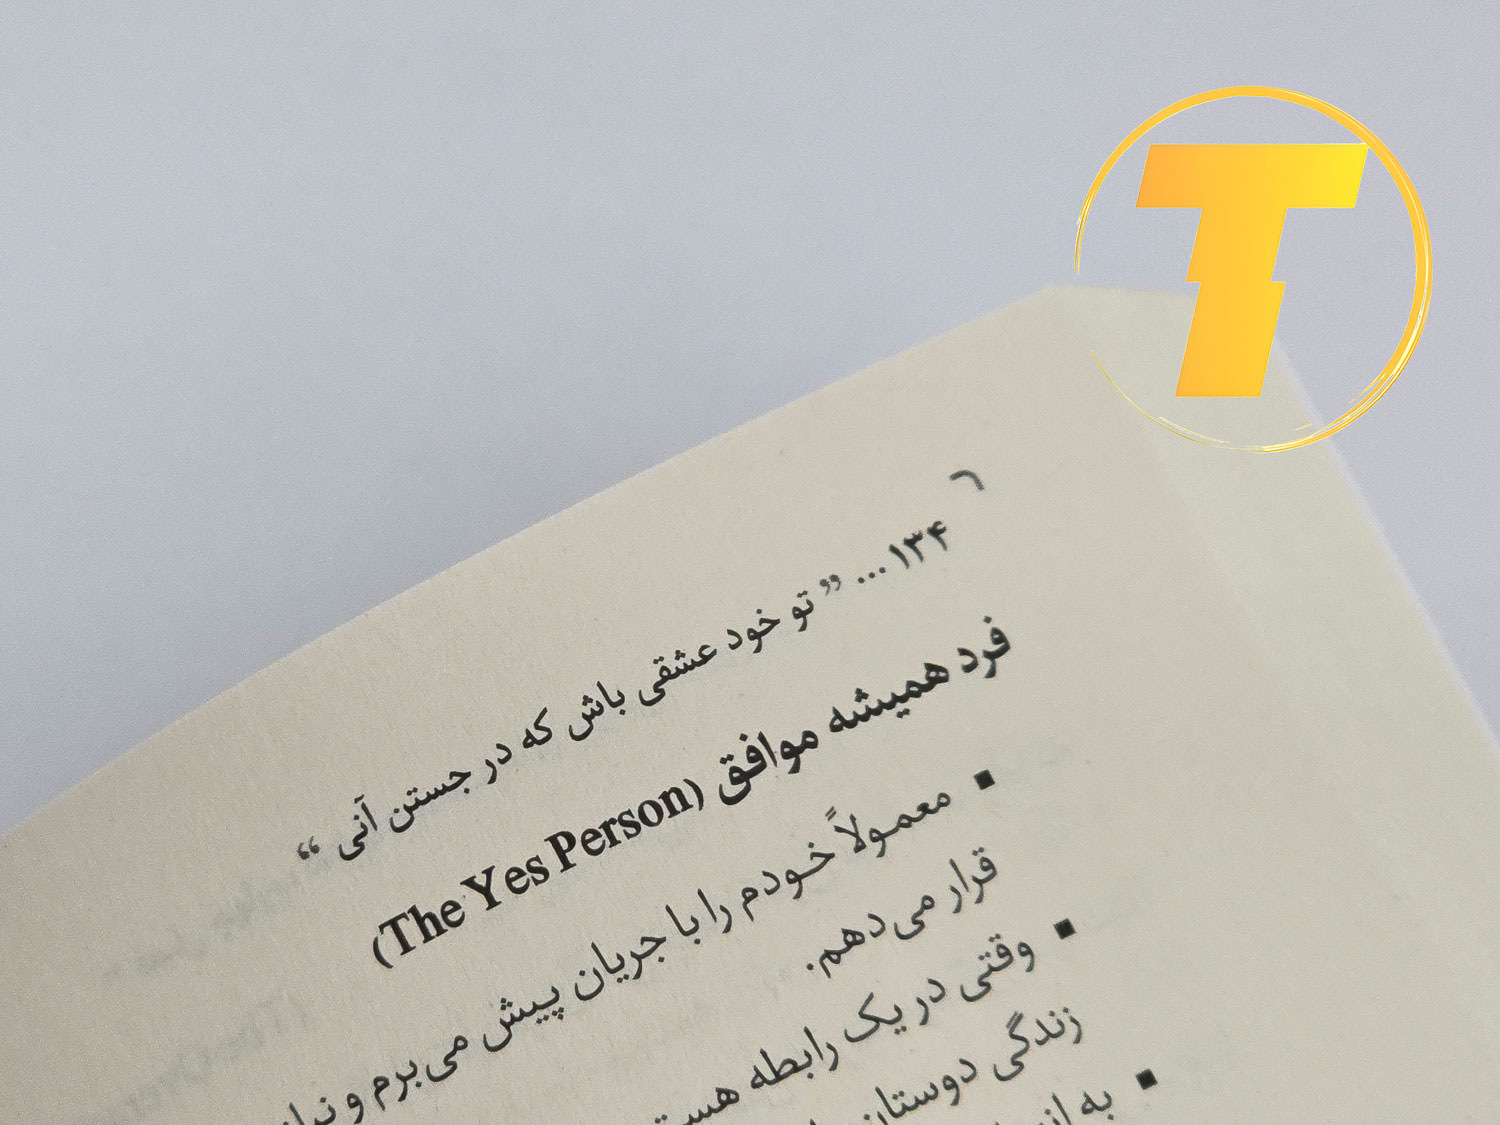 T
۱۳۴ ... ” تو خود عشقی باش که در جستن آنی “
فرد همیشه موافق (The Yes Person)
▪ معمولاً خودم را با جریان پیش می‌برم و
قرار می‌دهم.
▪ وقتی در یک رابطه
زندگی
▪ به